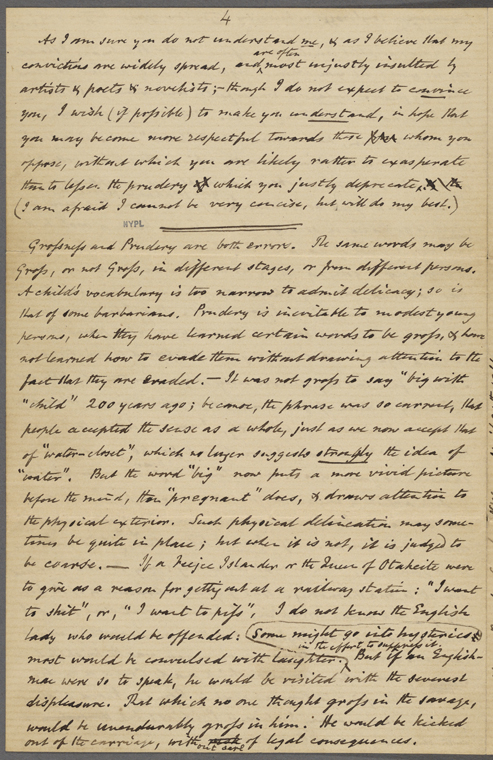 4
As I am sure you do not understand me, & as I believe that my
convictions are widely spread, and are often most unjustly insulted by
artists & poets & novelists; – though I do not expect to convince
you, I wish (if possible) to make you understand, in hope that
you may become more respectful towards those whom you
oppose, without which you are likely rather to exasperate
than to lessen the prudery which you justly deprecate.
(I am afraid I cannot be very concise, but will do my best.)
NYPL
Grossness and Prudery are both errors. The same words may be
Gross, or not Gross, in different stages, or from different persons.
A child's vocabulary is too narrow to admit delicacy; so is
that of some barbarians. Prudery is inevitable to modest young
persons, when they have learned certain words to be gross, & have
not learned how to evade them without drawing attention to the
fact that they are evaded. – It was not gross to say "big with
"child" 200 years ago; because, the phrase was so current, that
people accepted the sense as a whole, just as we now accept that
of "water-closet", which no longer suggests strongly the idea of
"water". But the word "big" now puts a more vivid picture
before the mind, than "pregnant" does, & draws attention to
the physical exterior. Such physical delineation may some-
times be quite in place; but when it is not, it is judged to
be coarse. — If a Feejee Islander or the Queen of Otaheite were
to give as a reason for getting out at a railway station: "I want
to shit", or, "I want to piss", I do not know the English
lady who would be offended: Some might go into hysterics
in the effort to suppress it:
most would be convulsed with laughter. But if an English-
man were so to speak, he would be visited with the severest
displeasure. That which no one thought gross in the savage,
would be unendurably gross in him. He would be kicked
out of the carriage, without care of legal consequences.